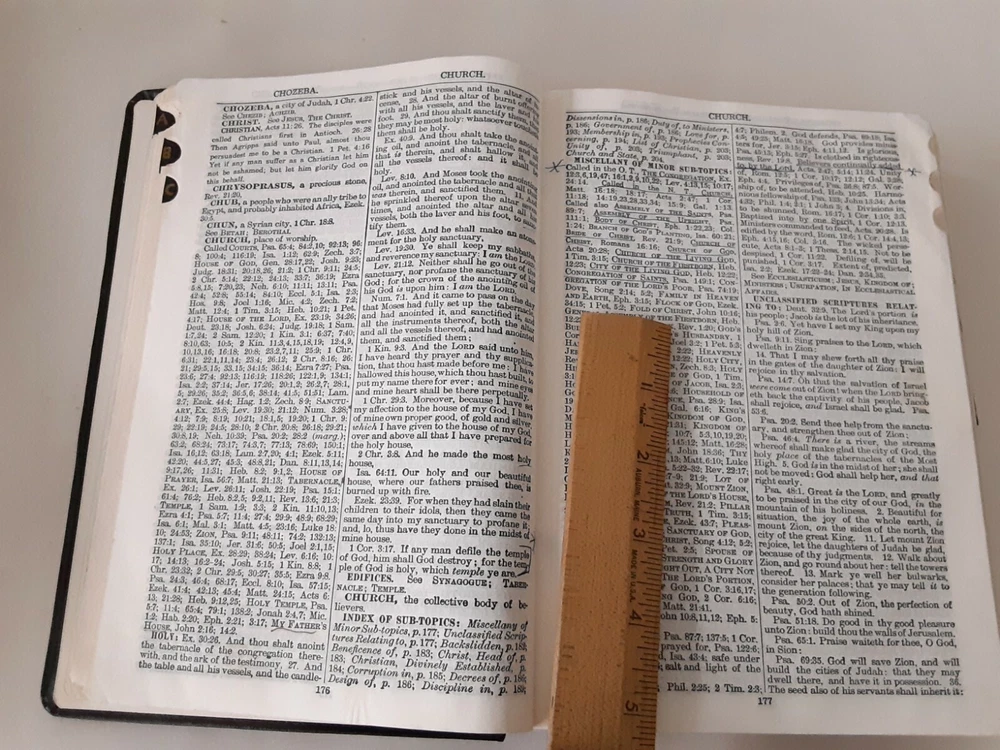 CHOZEBA.
CHURCH.
CHOZEBA, a city of Judah, 1 Chr. 4:22.
See CHEZIB; ACHZIB.
CHRIST. See JESUS, THE CHRIST.
CHRISTIAN, Acts 11:26. The disciples were
called Christians first in Antioch. 26:28
Then Agrippa said unto Paul, almost thou
persuadest me to be a Christian. 1 Pet. 4:16
Yet if any man suffer as a Christian let him
not be ashamed, but let him glorify God on
this behalf.
CHRYSOPRASUS, a precious stone,
Rev. 21:20.
CHUB, a people who were an ally tribe to
Egypt, and probably inhabited Africa, Ezek.
30:5.
CHUN, a Syrian city, 1 Chr. 18:8.
See BETAH; BEROTHAI.
CHURCH, place of worship.
Called COURTS, Psa. 65:4; 84:2,10; 92:13; 96:
8; 100:4; 116:19; Isa. 1:12; 62:9; Zech. 3:7;
HOUSE OF GOD, Gen. 28:17,22; Josh. 9:23;
Judg. 18:31; 20:18,26; 21:2; 1 Chr. 9:11; 24:5;
2 Chr. 5:14; 22:12; 24:13; 33:7; 36:19; Ezra
5:8,15; 7:20,23; Neh. 6:10; 11:11; 13:11; Psa.
42:4; 52:8; 55:14; 84:10; Eccl. 5:1; Isa. 2:3;
Hos. 9:8; Joel 1:16; Mic. 4:2; Zech. 7:2;
Matt. 12:4; 1 Tim. 3:15; Heb. 10:21; 1 Pet.
4:17; HOUSE OF THE LORD, Ex. 23:19; 34:26;
Deut. 23:18; Josh. 6:24; Judg. 19:18; 1 Sam.
1:7,24; 2 Sam. 12:20; 1 Kin. 3:1; 6:37; 7:40;
8:10,63; 10:5; 2 Kin. 11:3,4,15,18,19; 12:4,9,
10,13,16; 16:18; 20:8; 23:2,7,11; 25:9; 1 Chr.
6:31; 22:1,11,14; 23:4; 26:12; 2 Chr. 8:16; 26:
21; 29:5,15; 33:15; 34:15; 36:14; Ezra 7:27; Psa.
23:6; 27:4; 92:13; 116:19; 118:26; 122:1,9; 134:1;
Isa. 2:2; 37:14; Jer. 17:26; 20:1,2; 26:2,7; 28:1,
5; 29:26; 35:2; 36:5,6; 38:14; 41:5; 51:51; Lam.
2:7; Ezek. 44:4; Hag. 1:2; Zech. 8:9; SANCTU-
ARY, Ex. 25:8; Lev. 19:30; 21:12; Num. 3:28;
4:12; 7:9; 8:19; 10:21; 18:1,5; 19:20; 1 Chr. 9:
29; 22:19; 24:5; 28:10; 2 Chr. 20:8; 26:18; 29:21;
30:8,19; Neh. 10:39; Psa. 20:2; 28:2 (marg.);
63:2; 68:24; 73:17; 74:3,7; 77:13; 78:69; 150:1;
Isa. 16:12; 63:18; Lam. 2:7,20; 4:1; Ezek. 5:11;
42:20; 44:5,27; 45:3; 48:8,21; Dan. 8:11,13,14;
9:17,26; 11:31; Heb. 8:2; 9:1,2; HOUSE OF
PRAYER, Isa. 56:7; Matt. 21:13; TABERNACLE,
Ex. 26:1; Lev. 26:11; Josh. 22:19; Psa. 15:1;
61:4; 76:2; Heb. 8:2,5; 9:2,11; Rev. 13:6; 21:3;
TEMPLE, 1 Sam. 1:9; 3:3; 2 Kin. 11:10,13;
Ezra 4:1; Psa. 5:7; 11:4; 27:4; 29:9; 48:9; 68:29;
Isa. 6:1; Mal. 3:1; Matt. 4:5; 23:16; Luke 18:
10; 24:53; ZION, Psa. 9:11; 48:11; 74:2; 132:13;
137:1; Isa. 35:10; Jer. 31:6; 50:5; Joel 2:1,15;
HOLY PLACE, Ex. 28:29; 38:24; Lev. 6:16; 10:
17; 14:13; 16:2-24; Josh. 5:15; 1 Kin. 8:8; 1
Chr. 23:32; 2 Chr. 29:5; 30:27; 35:5; Ezra 9:8.
Psa. 24:3; 46:4; 68:17; Eccl. 8:10; Isa. 57:15;
Ezek. 41:4; 42:13; 45:4; Matt. 24:15; Acts 6:
13; 21:28; Heb. 9:12,25; HOLY TEMPLE, Psa.
5:7; 11:4; 65:4; 79:1; 138:2; Jonah 2:4,7; Mic.
1:2; Hab. 2:20; Eph. 2:21; 3:17; MY FATHER'S
HOUSE, John 2:16; 14:2.
HOLY: Ex. 30:26. And thou shalt anoint
the tabernacle of the congregation there-
with, and the ark of the testimony, 27. And
the table and all his vessels, and the candle-
stick and his vessels, and the altar of
cense, 28. And the altar of burnt offe
with all his vessels, and the laver and
foot. 29. And thou shalt sanctify them,
they may be most holy: whatsoever touch
them shall be holy.
Ex. 40:9. And thou shalt take the anoin
ing oil, and anoint the tabernacle, and
that is therein, and shalt hallow it, a
all the vessels thereof: and it shall
holy.
Lev. 8:10. And Moses took the anointin
oil, and anointed the tabernacle and all
was therein, and sanctified them.
he sprinkled thereof upon the altar
times, and anointed the altar and all
vessels, both the laver and his foot, to san
tify them.
Lev. 16:33. And he shall make an atone-
ment for the holy sanctuary.
Lev. 19:30. Ye shall keep my sabbaths,
and reverence my sanctuary: I am the LORD.
Lev. 21:12. Neither shall he go out of the
sanctuary, nor profane the sanctuary of
God; for the crown of the anointing oil of
his God is upon him: I am the LORD.
Num. 7:1. And it came to pass on the day
that Moses had fully set up the tabernacle,
and had anointed it, and sanctified it, and
all the instruments thereof, both the altar
and all the vessels thereof, and had anointed
them, and sanctified them;
1 Kin. 9:3. And the LORD said unto him,
I have heard thy prayer and thy supplica-
tion, that thou hast made before me: I have
hallowed this house, which thou hast built, to
put my name there for ever; and mine eyes
and mine heart shall be there perpetually.
1 Chr. 29:3. Moreover, because I have set
my affection to the house of my God, I have
of mine own proper good, of gold and silver,
which I have given to the house of my God,
over and above all that I have prepared for
the holy house.
2 Chr. 3:8. And he made the most holy
house,
Isa. 64:11. Our holy and our beautiful
house, where our fathers praised thee, is
burned up with fire.
Ezek. 23:39. For when they had slain their
children to their idols, then they came the
same day into my sanctuary to profane it;
and, lo, thus have they done in the midst of
mine house.
1 Cor. 3:17. If any man defile the temple
of God, him shall God destroy; for the tem-
ple of God is holy, which temple ye are.
EDIFICES. See SYNAGOGUE; TABER-
NACLE; TEMPLE.
CHURCH, the collective body of be-
lievers.
INDEX OF SUB-TOPICS: Miscellany of
Minor Sub-topics, p. 177; Unclassified Scrip-
tures Relating to, p. 177; Backslidden, p. 182;
Beneficence of, p. 183; Christ, Head of, p.
183; Christian, Divinely Established, p.
184; Corruption in, p. 185; Decrees of, p. 186;
Design of, p. 186; Discipline in, p. 186;
176
CHURCH.
Dissensions in, p. 186; Duty of, to Ministers,
p. 186; Government of, p. 186; Love for, p.
193; Membership in, p. 193;
mourning, p. 194; List of Prophecies Con-
Unity of, p. 203; Triumphant, p. 203;
Church and State, p. 204.
MISCELLANY OF MINOR SUB-TOPICS:
Called in the O. T., THE CONGREGATION, Ex.
12:3,6,19,47; 16:1,2,9,10,22; Lev. 4:13,15; 10:17;
24:14. Called in the N. T., CHURCH,
Matt. 16:18; 18:17; Acts 2:47; 1 Cor.
11:18; 14:19,23,28,33,34; 15:9; Gal. 1:13.
Called also ASSEMBLY OF THE SAINTS, Psa.
89:7; ASSEMBLY OF THE UPRIGHT, Psa.
111:1; BODY OF CHRIST, Eph. 1:22,23; Col.
1:24; BRANCH OF GOD'S PLANTING, Isa. 60:21;
BRIDE OF CHRIST, Rev. 21:9; CHURCH OF
CHRIST, Romans 16:16; CHURCH OF GOD,
Acts 20:28; CHURCH OF THE LIVING GOD,
1 Tim. 3:15; CHURCH OF THE FIRSTBORN, Heb.
12:23; CITY OF THE LIVING GOD, Heb. 12:22;
CONGREGATION OF SAINTS, Psa. 149:1; CON-
GREGATION OF THE LORD'S POOR, Psa. 74:19;
DOVE, Song 2:14; 5:2; FAMILY IN HEAVEN
AND EARTH, Eph. 3:15; FLOCK OF GOD, Ezek.
34:15; 1 Pet. 5:2; FOLD OF CHRIST, John 10:16;
OF THE FIRSTBORN, Heb.
Rev. 1:20; GOD'S
HUSBANDRY, 1
Joel 3:2; 1 Pet. 5:3;
2:22; HEAVENLY
12:22; HOLY CITY,
Zech. 8:3; HOLY
OF GOD, 1 Tim.
OF JACOB, Isa. 2:3;
HOUSEHOLD OF
Isa. 28:9; Isa.
Gal. 6:16; KING'S
KINGDOM OF GOD,
21:31; KINGDOM OF
10:7; 5:3,10,19,20;
145:12; Matt. 16:28;
John 18:36; MY
Matt. 6:10; Luke
5:22-32; Rev. 22:17;
7-9; 21:9; LOT OF
32:9; MOUNT ZION,
OF THE LORD'S HOUSE,
Rev. 21:2; PILLAR
TRUTH, 1 Tim. 3:15;
Ezek. 43:7; PLEAS-
SANCTUARY OF GOD,
CHRIST, Song 4:12; 5:2;
Pet. 2:5; SPOUSE OF
STRENGTH AND GLORY
OUT, A CITY NOT
THE LORD'S PORTION,
GOD, 1 Cor. 3:16,17;
GOD, 2 Cor. 6:16;
Matt. 21:41.
John 10:8,11,12; Eph. 5:
Psa. 87:7; 137:5; 1 Cor.
prayed for, Psa. 122:6;
Isa. 43:4; safe under
salt and light of the
Phil. 2:25; 2 Tim. 2:3;
4:7; Philem. 2. God defends, Psa. 89:18; Isa.
4:5; 49:25; Matt. 16:18. God provides minis-
ters for, Jer. 3:15; Eph. 4:11,12. Is glorious,
Psa. 45:13; Eph. 5:27. Is clothed in righteous-
ness, Rev. 19:8. Believers continually added
to by the Lord, Acts 2:47; 5:14; 11:24. Unity
of, Rom. 12:5; 1 Cor. 10:17; 12:12; Gal. 3:28;
Eph. 4:4. Privileges of, Psa. 36:8; 87:5. Wor-
ship of, to be attended, Heb. 10:25. Harmo-
nious fellowship of, Psa. 133; John 13:34; Acts
4:32; Phil. 1:4; 2:1; 1 John 3; 4. Divisions in,
to be shunned, Rom. 16:17; 1 Cor. 1:10; 3:3.
Baptized into by one Spirit, 1 Cor. 12:13.
Ministers commanded to feed, Acts 20:28. Is
edified by the word, Rom. 12:6; 1 Cor. 14:4,13;
Eph. 4:15,16; Col. 3:16. The wicked perse-
cute, Acts 8:1-3; 1 Thess. 2:14,15. Not to be
despised, 1 Cor. 11:22. Defiling of, will be
punished, 1 Cor. 3:17. Extent of, predicted,
Isa. 2:2; Ezek. 17:22-24; Dan. 2:34,35.
See ECCLESIASTICISM; JESUS, KINGDOM OF;
MINISTERS; USURPATION, IN ECCLESIASTICAL
AFFAIRS.
UNCLASSIFIED SCRIPTURES RELAT-
ING TO: Deut. 32:9. The Lord's portion is
his people; Jacob is the lot of his inheritance.
Psa. 2:6. Yet have I set my King upon my
holy hill of Zion.
Psa. 9:11. Sing praises to the LORD, which
dwelleth in Zion:
14. That I may shew forth all thy praise
in the gates of the daughter of Zion: I will
rejoice in thy salvation.
Psa. 14:7. Oh that the salvation of Israel
were come out of Zion! when the LORD bring-
eth back the captivity of his people, Jacob
shall rejoice, and Israel shall be glad. Psa.
53:6.
Psa. 20:2. Send thee help from the sanctu-
ary, and strengthen thee out of Zion;
Psa. 46:4. There is a river, the streams
whereof shall make glad the city of God, the
holy place of the tabernacles of the Most
High. 5. God is in the midst of her; she shall
not be moved: God shall help her, and that
right early.
Psa. 48:1. Great is the LORD, and greatly
to be praised in the city of our God, in the
mountain of his holiness. 2. Beautiful for
situation, the joy of the whole earth, is
mount Zion, on the sides of the north, the
city of the great King. 11. Let mount Zion
rejoice, let the daughters of Judah be glad,
because of thy judgments. 12. Walk about
Zion, and go round about her: tell the towers
thereof. 13. Mark ye well her bulwarks,
consider her palaces; that ye may tell it to
the generation following.
Psa. 50:2. Out of Zion, the perfection of
beauty, God hath shined.
Psa. 51:18. Do good in thy good pleasure
unto Zion: build thou the walls of Jerusalem.
Psa. 65:1. Praise waiteth for thee, O God,
in Sion:
Psa. 69:35. God will save Zion, and will
build the cities of Judah: that they may
dwell there, and have it in possession. 36.
The seed also of his servants shall inherit it:
177
1
2
3
4
5
MADE IN U.S.A.